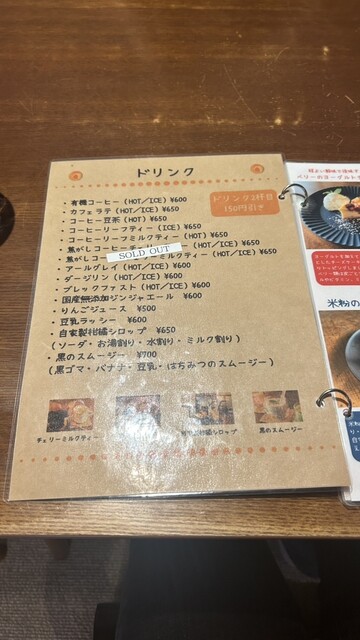 ドリンク
・有機コーヒー (HOT/ICE) ¥600
・カフェラテ (HOT/ICE) ¥650
・コーヒー豆茶 (HOT) ¥650
・コーヒーリーフティー (ICE) ¥650
・コーヒーリーフミルクティー (HOT) ¥650
・焦がしコーヒーチェリー (HOT/ICE) ¥650
・焦がしコ ミルクティー (HOT/ICE) ¥650
SOLD OUT
・アールグレイ (HOT/ICE) ¥600
・ダージリン (HOT/ICE) ¥600
・ブレックファスト (HOT/ICE) ¥600
・国産無添加ジンジャエール ¥600
・りんごジュース ¥500
・豆乳ラッシー ¥600
・自家製柑橘シロップ ¥650
(ソーダ・お湯割り・水割り・ミルク割り)
・黒のスムージー ¥700
(黒ゴマ・バナナ・豆乳・はちみつのスムージー)
ドリンク2杯目
150円引き
チェリーミルクティー
柑橘シロップ
黒のスムージー
米粉の